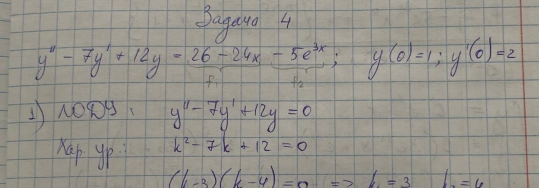 Задача 4
y'' - 7y' + 12y = 26 - 24x - 5e^{3x}; y(0)=1; y'(0)=2
f₁ f₂
1) ЛОДУ: y'' - 7y' + 12y = 0
Хар. ур.: k² - 7k + 12 = 0
(k-3)(k-4) = 0 => k₁ = 3 k₂ = 4